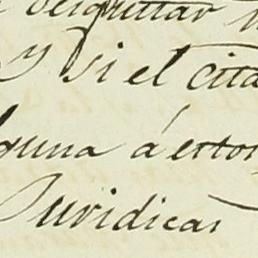 Y si el cita
guna á estos
Juridicas